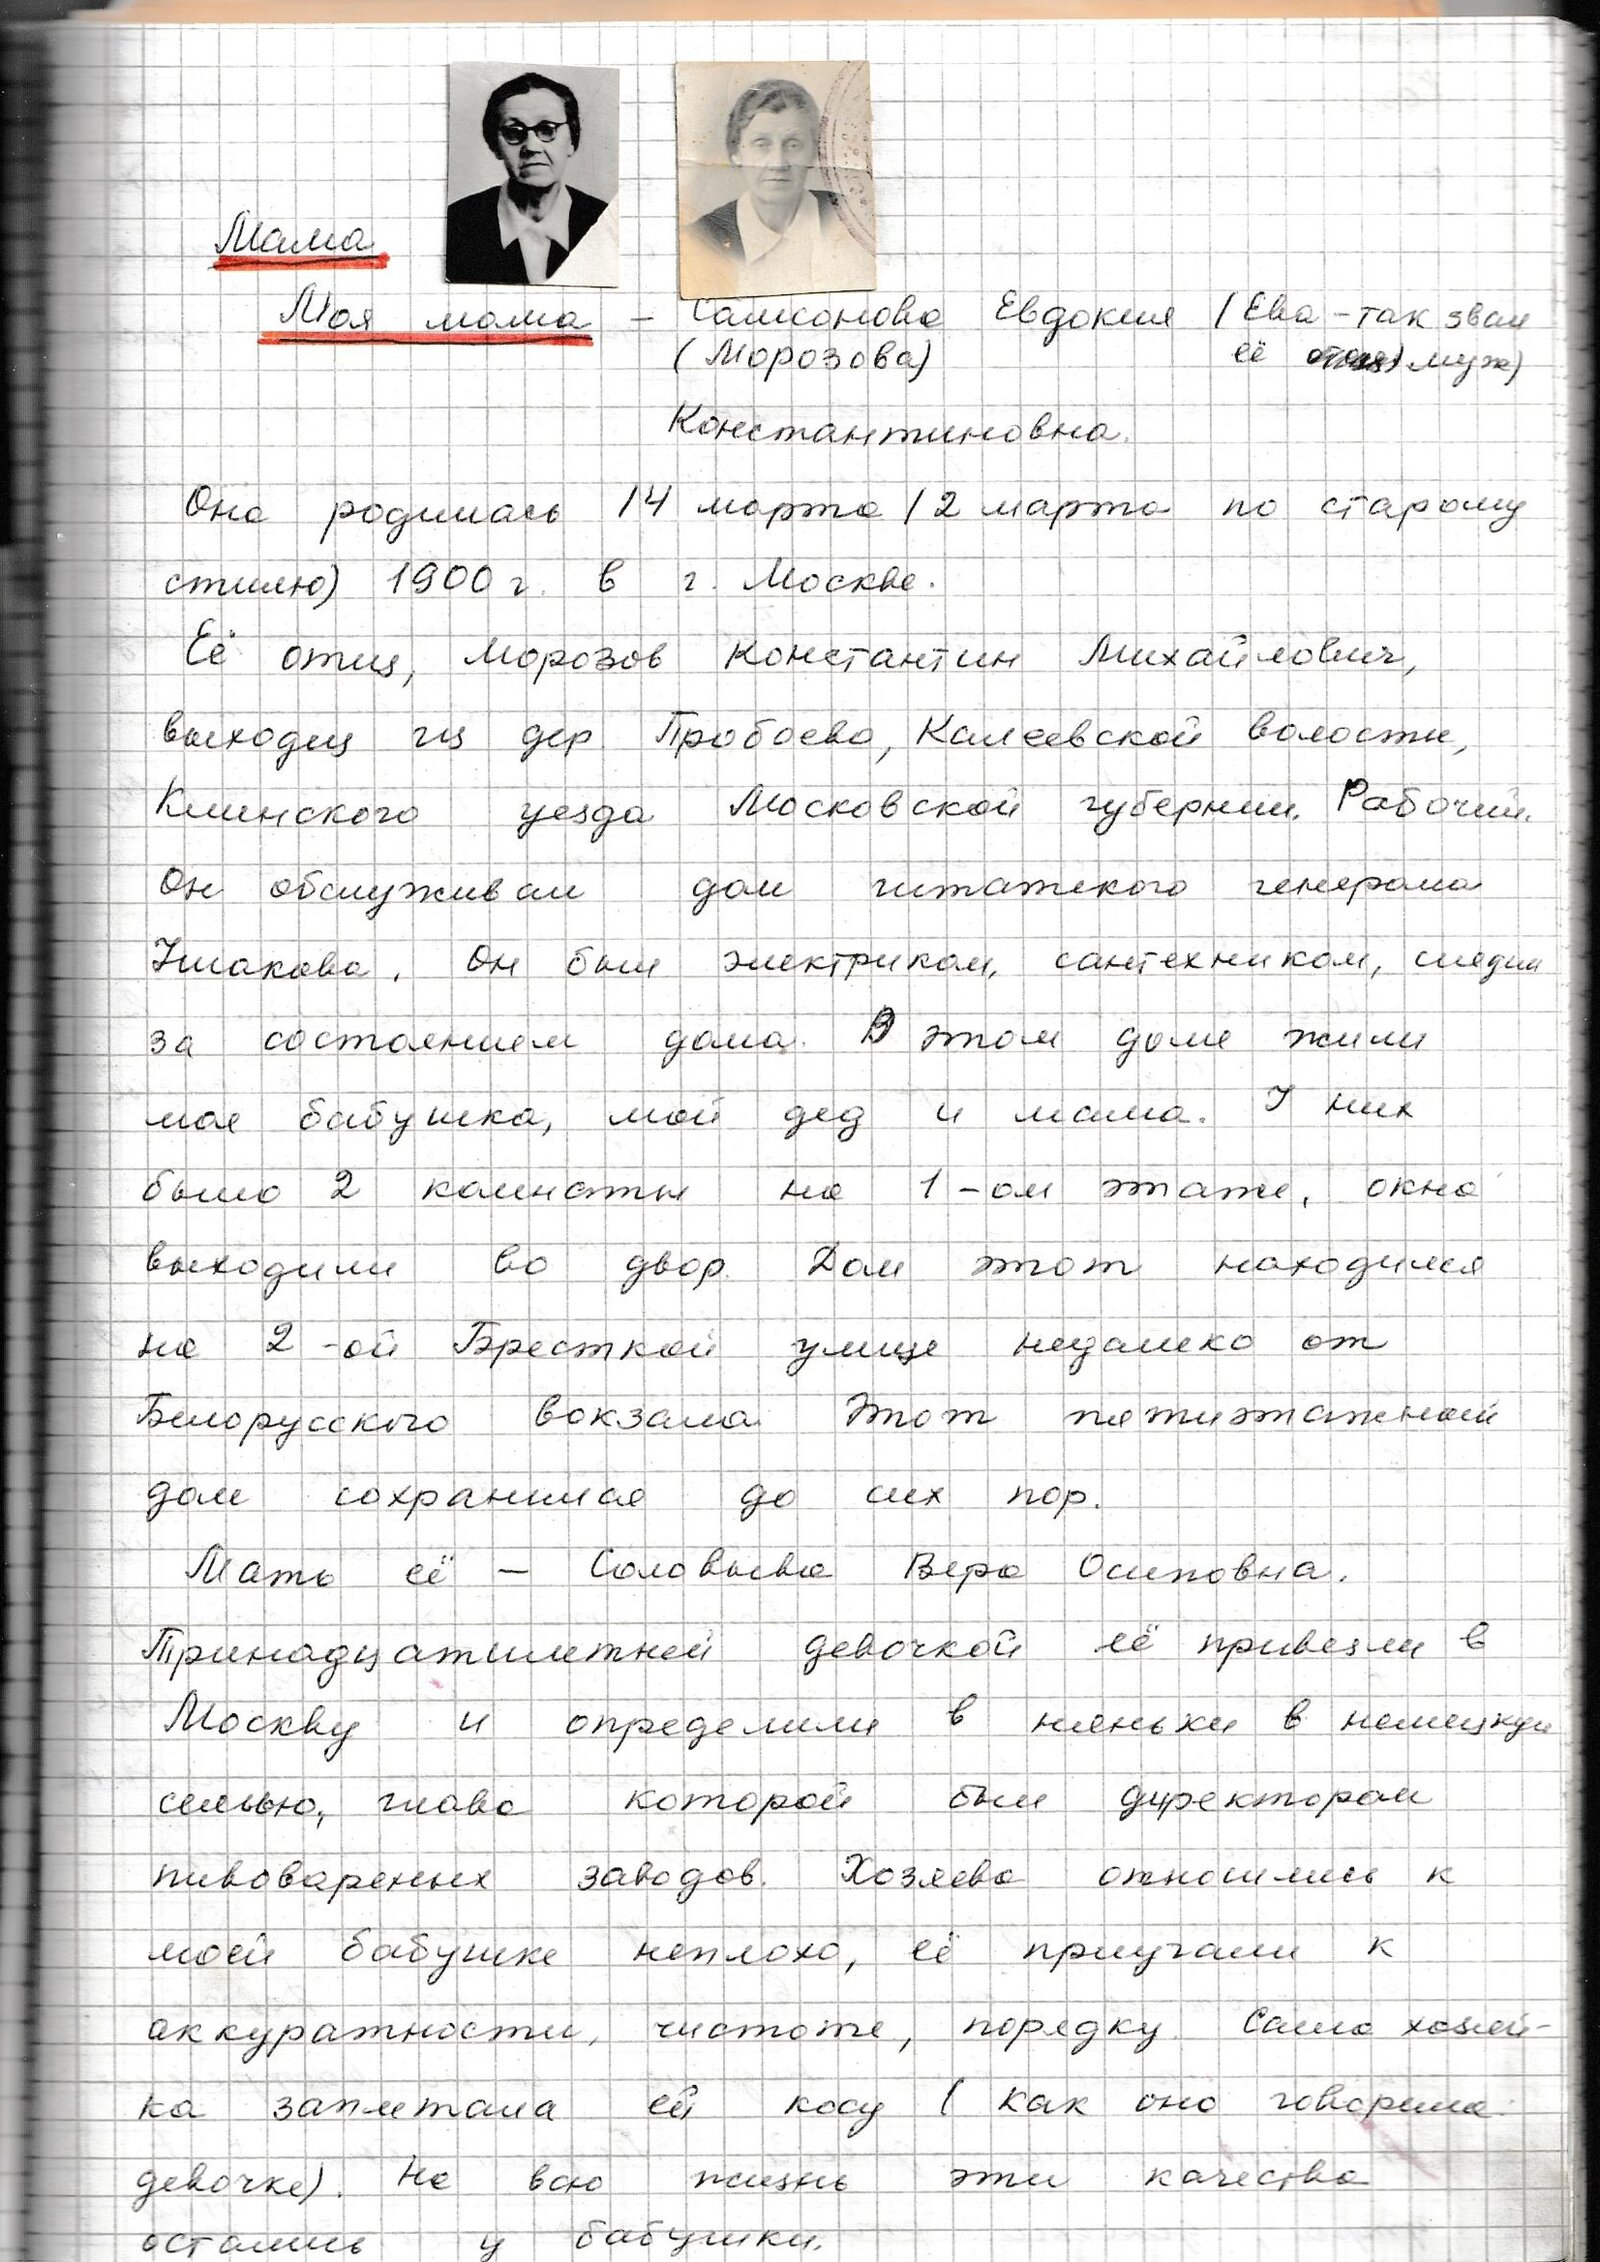 Мама
Моя мама – Самсонова Евдокия (Ева – так звал
(Морозова) её муж)
Константиновна.
Она родилась 14 марта (2 марта по старому
стилю) 1900 г. в г. Москве.
Её отец, Морозов Константин Михайлович,
выходец из дер Пробоево, Калеевской волости,
Клинского уезда Московской губернии. Рабочий.
Он обслуживал дом штатского генерала
Ушакова. Он был электриком, сантехником, следил
за состоянием дома. В этом доме жили
моя бабушка, мой дед и мама. У них
было 2 комнаты на 1-ом этаже, окна
выходили во двор. Дом этот находился
на 2-ой Бресткой улице недалеко от
Белорусского вокзала. Этот пятиэтажный
дом сохранился до сих пор.
Мать её – Соловьева Вера Осиповна.
Тринадцатилетней девочкой её привезли в
Москву и определили в няньки в немецкую
семью, глава которой был директором
пивовареных заводов. Хозяева относились к
моей бабушке неплохо, её приучали к
аккуратности, чистоте, порядку. Сама хозяй-
ка заплетала ей косу (как она говорила
девочке). На всю жизнь эти качества
остались у бабушки.